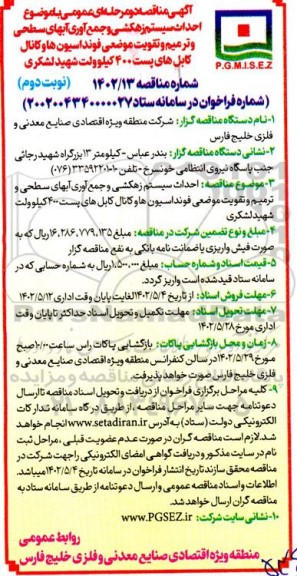 آگهی مناقصه دو مرحله‌ای عمومی با موضوع
احداث سیستم زهکشی و جمع آوری آبهای سطحی
و ترمیم و تقویت موضعی فونداسیون ها و کانال
کابل های پست ۴۰۰ کیلوولت شهید لشکری
P.G.M.I.S.E.Z
شماره مناقصه ۱۴۰۲/۱۳ (نوبت دوم)
(شماره فراخوان در سامانه ستاد ۲۰۰۲۰۰۴۳۴۰۰۰۰۰۲۷)
۱- نام دستگاه مناقصه گزار: شرکت منطقه ویژه اقتصادی صنایع معدنی و
فلزی خلیج فارس
۲- نشانی دستگاه مناقصه گزار: بندرعباس - کیلومتر ۱۳ بزرگراه شهید رجائی
جنب پاسگاه نیروی انتظامی خونسرخ - تلفن ۱۰-۳۳۵۹۲۲۰۱ (۰۷۶)
۳- موضوع مناقصه: احداث سیستم زهکشی و جمع آوری آبهای سطحی و
ترمیم و تقویت موضعی فونداسیون ها و کانال کابل های پست ۴۰۰ کیلوولت
شهید لشکری
۴- مبلغ و نوع تضمین شرکت در مناقصه: مبلغ ۱۶,۲۸۶,۷۷۹,۱۳۵ ریال که به
صورت فیش واریزی یا ضمانت نامه بانکی به نفع مناقصه گزار
۵- قیمت اسناد و شماره حساب: مبلغ ۱,۵۰۰,۰۰۰ ریال به شماره حسابی که در
سامانه ستاد قید شده است واریز گردد.
۶- مهلت فروش اسناد: از تاریخ ۱۴۰۲/۵/۴ لغایت پایان وقت اداری ۱۴۰۲/۵/۱۲
۷- مهلت تحویل اسناد: مهلت تکمیل و تحویل اسناد حداکثر تا پایان وقت
اداری مورخ ۱۴۰۲/۵/۲۸
۸- زمان و محل بازگشایی پاکات: بازگشایی پاکات راس ساعت ۱۰/۰۰ صبح
مورخ ۱۴۰۲/۵/۲۹ در سالن کنفرانس منطقه ویژه اقتصادی صنایع معدنی و
فلزی خلیج فارس صورت خواهد پذیرفت.
۹- کلیه مراحل برگزاری فراخوان از دریافت و تحویل اسناد مناقصه تا ارسال
دعوتنامه جهت سایر مراحل مناقصه، از طریق درگاه سامانه تدارکات
الکترونیکی دولت (ستاد) به آدرس www.setadiran.ir انجام خواهد
شد. لازم است مناقصه گران در صورت عدم عضویت قبلی، مراحل ثبت
نام در سایت مذکور و دریافت گواهی امضای الکترونیکی را جهت شرکت در
مناقصه محقق سازند تاریخ انتشار فراخوان در سامانه تاریخ ۱۴۰۲/۵/۴ میباشد.
اطلاعات و اسناد مناقصه عمومی و ارسال دعوتنامه از طریق سامانه ستاد به
مناقصه گران ارسال خواهد شد.
۱۰- نشانی سایت شرکت: www.PGSEZ.ir
روابط عمومی
منطقه ویژه اقتصادی صنایع معدنی و فلزی خلیج فارس